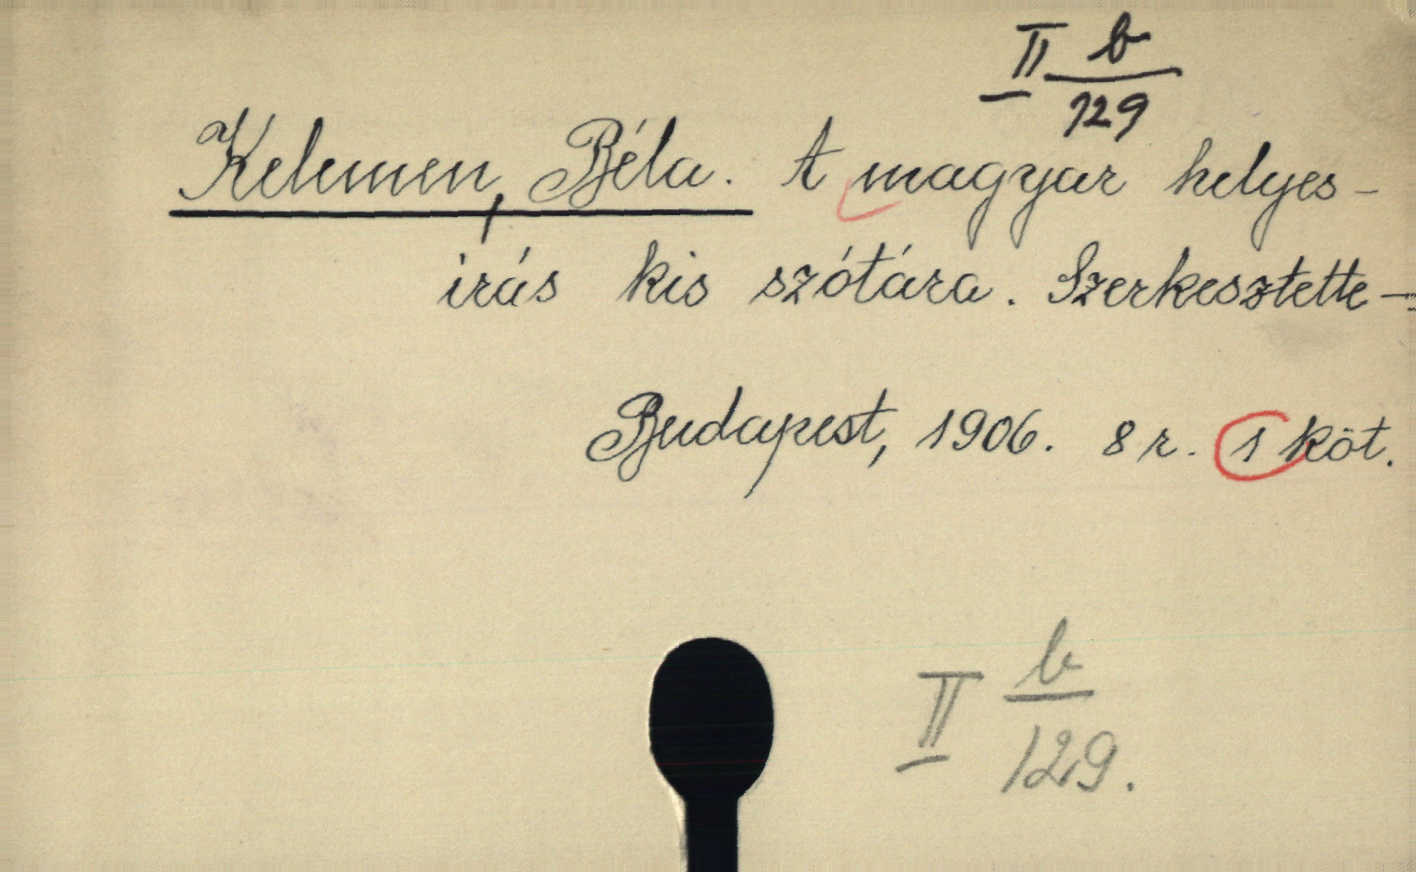 II b
129
Kelemen, Béla. A magyar helyes-
irás kis szótára. Szerkesztette –
Budapest, 1906. 8 r. 1 köt.
II b
129.